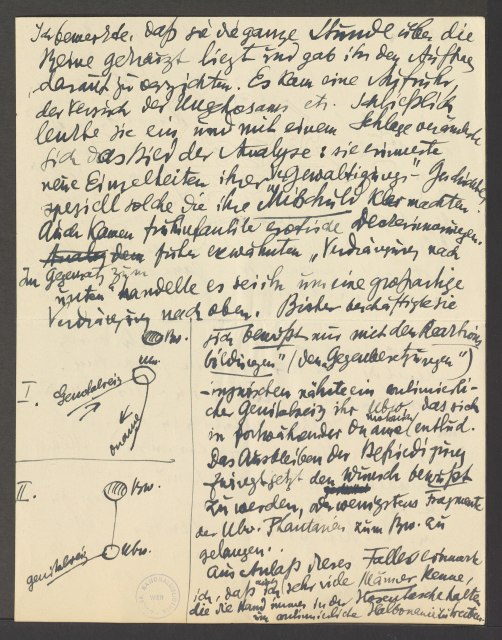 Ich bemerkte, daß sie die ganze Stunde über die
Beine gekreuzt liegt und gab ihr den Auftrag
darauf zu verzichten. Es kam eine Aufruhr
der Versuch der Ungehorsams etc. Schließlich
lenkte sie ein und mit einem Schlage veränderte
sich das Bild der Analyse: sie erinnerte
neue Einzelheiten ihrer "Vergewaltigungs-" Geschichte,
speziell solche die ihre "Mitschuld" klar machten.
Auch kamen frühinfantile erotische Deckerinnerungen.
früher erwähnten "Verdrängung nach
Im Gegensatz zum
unten" handelte es sich um eine großartige
Verdrängung nach oben. Bisher beschäftigte sie
sich bewußt nur mit den Reaktions-
bildungen" (den Gegenbesetzungen")
- inzwischen nährte ein kontinuierli-
cher Genitalreiz ihr Ubw. das sich
in fortwährender Onanie entlud.
Das Ausbleiben der Befriedigung
zwingt jetzt den Wunsch bewußt
zu werden, oder wenigstens Fragmente
der Ubw. Phantasien zum Bw. zu
gelangen.
Aus Anlaß dieses Falles erinnerte
ich, daß ich sehr viele Männer kenne,
die die Hand immer in der Hosentasche halten
I.
Bw.
Ubw.
Genitalreiz
Onanie
II.
Bw.
Genitalreiz
Ubw.
WIEN